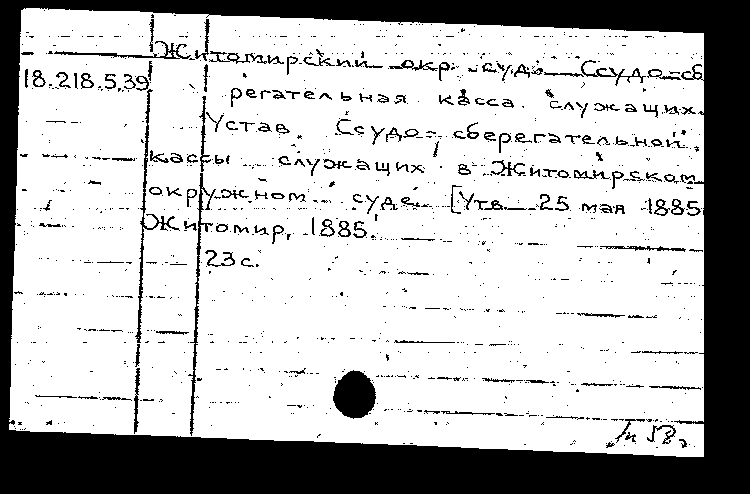 Житомирский окр. суд. Ссудо-сб
18.218.5.39
регательная касса служащих.
Устав. Ссудо-сберегательной
кассы служащих в Житомирском
окружном суде. [Утв. 25 мая 1885
Житомир, 1885.
23 с.